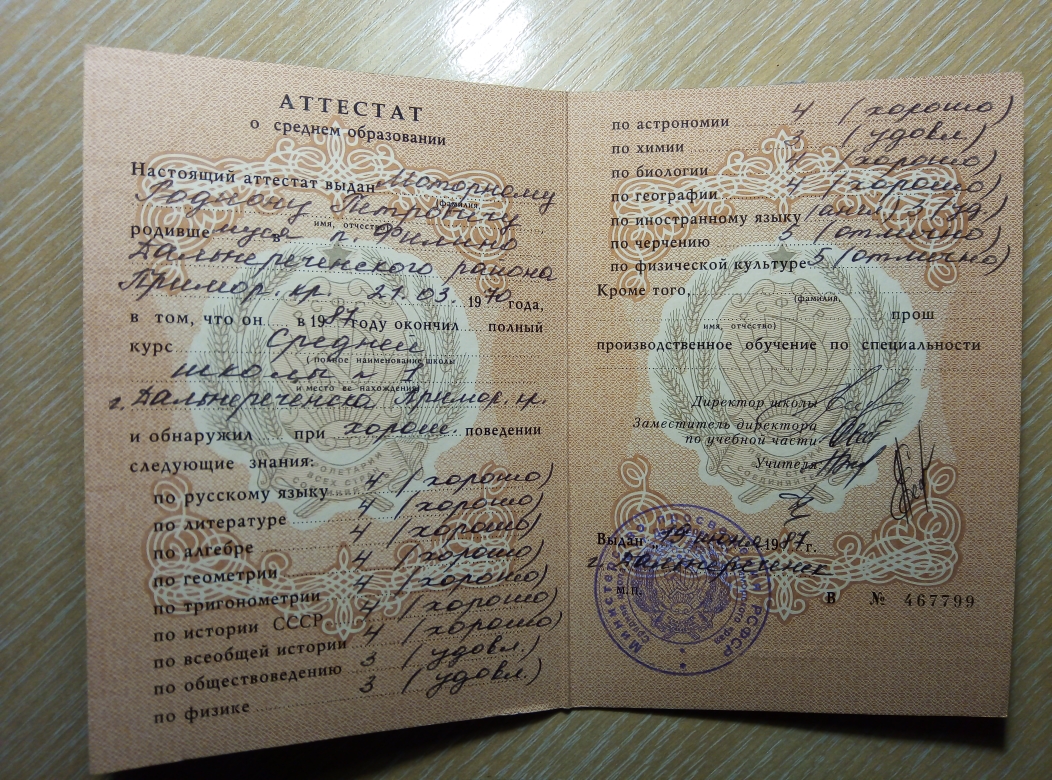 АТТЕСТАТ
о среднем образовании
Настоящий аттестат выдан Моторному
(фамилия,
Родиону Петровичу
имя, отчество)
родивше муся в п. Филино
Дальнереченского района
Примор. кр. 21.03. 1970 года,
в том, что он в 1987 году окончил полный
курс Средней
( полное наименование школы
школы № 1
и место ее нахождения)
г. Дальнереченска Примор. кр.
и обнаружил при хорош. поведении
следующие знания:
по русскому языку 4 (хорошо)
по литературе 4 (хорошо)
по алгебре 4 (хорошо)
по геометрии 4 (хорошо)
по тригонометрии 4 (хорошо)
по истории СССР 4 (хорошо)
по всеобщей истории 4 (хорошо)
по обществоведению 3 (удовл.)
по физике 3 (удовл.)
по астрономии 4 (хорошо)
по химии 3 (удовл)
по биологии 4 (хорошо)
по географии 4 (хорошо)
по иностранному языку (англ) 3 (уд)
по черчению 5 (отлично)
по физической культуре 5 (отлично)
Кроме того,
(фамилия,
прош
имя, отчество)
производственное обучение по специальности
Директор школы
Заместитель директора
по учебной части
Учителя
Выдан 19 июня 1987 г.
г. Дальнереченск
м.п.
В № 467799
Министерство просвещения РСФСР